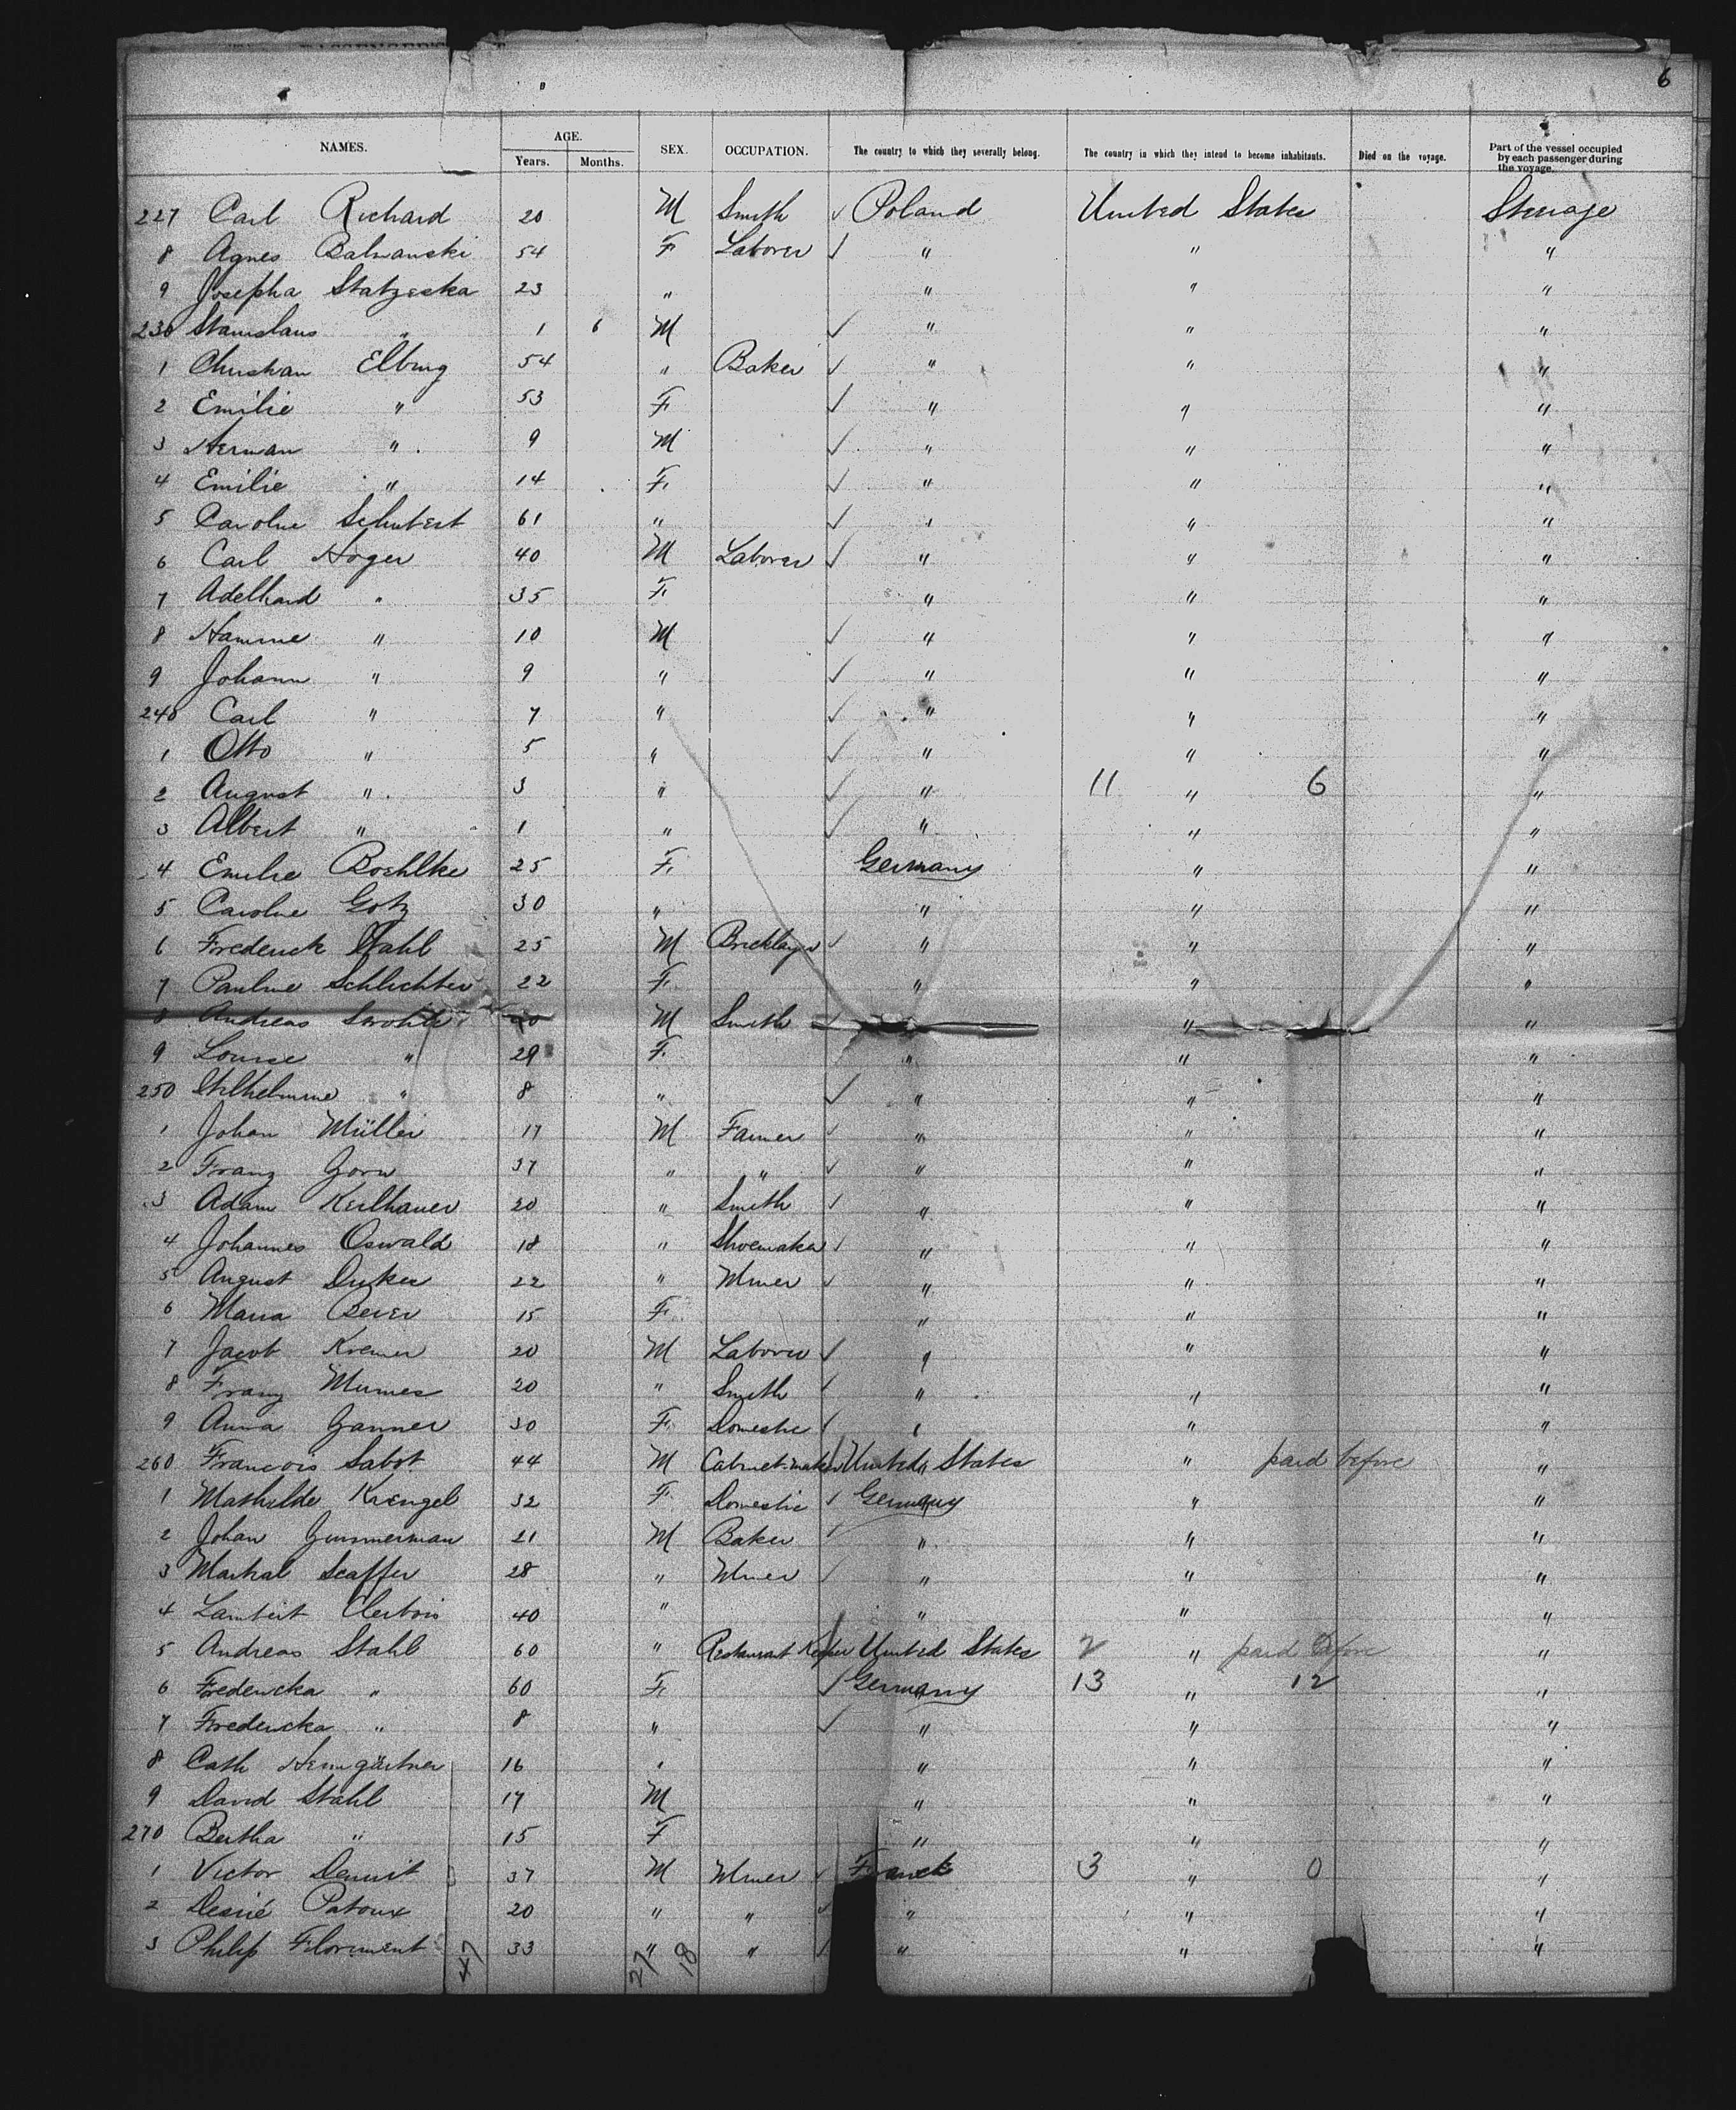 6
NAMES. AGE. Years. Months. SEX. OCCUPATION. The country to which they severally belong. The country in which they intend to become inhabitants. Died on the voyage. Part of the vessel occupied by each passenger during the voyage.
227 Carl Richard 20 M Smith ✓ Poland United States Steerage
8 Agnes Balmanski 54 F Laborer ✓ " " "
9 Josepha Statzeska 23 " " " "
230 Stanislaus " 1 6 M ✓ " " "
1 Christian Elbing 54 " Baker ✓ " " "
2 Emilie " 53 F ✓ " " "
3 Herman " 9 M ✓ " " "
4 Emilie " 14 F ✓ " " "
5 Caroline Schubert 61 " ✓ " " "
6 Carl Hoger 40 M Laborer ✓ " " "
7 Adelhard " 35 F " " "
8 Hamme " 10 M ✓ " " "
9 Johann " 9 " ✓ " " "
240 Carl " 7 " ✓ " " "
1 Otto " 5 " ✓ " " "
2 August " 3 " ✓ " 11 " 6 "
3 Albert " 1 " ✓ " " "
4 Emilie Boehlke 25 F Germany " "
5 Caroline Gotz 30 " " " "
6 Frederick Stahl 25 M Bricklayer ✓ " " "
7 Pauline Schlichter 22 F " " "
8 Andreas M Smith " "
9 Louise " 29 F " " "
250 Wilhelmine " 8 " ✓ " " "
1 Johan Müller 17 M Farmer ✓ " " "
2 Franz Zorn 37 " " ✓ " " "
3 Adam Keilhauer 20 " Smith ✓ " " "
4 Johannes Oswald 18 " Shoemaker ✓ " " "
5 August Dukes 22 " Miner ✓ " " "
6 Maria Beier 15 F " " "
7 Jacob Kremer 20 M Laborer ✓ " " "
8 Franz Mumes 20 " Smith ✓ " " "
9 Anna Zanner 30 F Domestic ✓ " " "
260 Francois Sabot 44 M Cabinet-maker ✓ United States " paid before "
1 Mathilde Krengel 32 F Domestic ✓ Germany " "
2 Johan Zimmerman 21 M Baker ✓ " " "
3 Martial Scaffer 28 " Miner ✓ " " "
4 Lambert Clerbois 40 " " " "
5 Andreas Stahl 60 " Restaurant Keeper United States 2 " paid before "
6 Fredericka " 60 F ✓ Germany 13 " 12 "
7 Fredericka " 8 " ✓ " " "
8 Cath Heimgärtner 16 " " " "
9 David Stahl 17 M " " "
270 Bertha " 15 F " " "
1 Victor Demit 37 M Miner ✓ France 3 " 0 "
2 Desiré Patoux 20 " " ✓ " " "
3 Philip Floriment 33 " " ✓ " " "
47 27 18